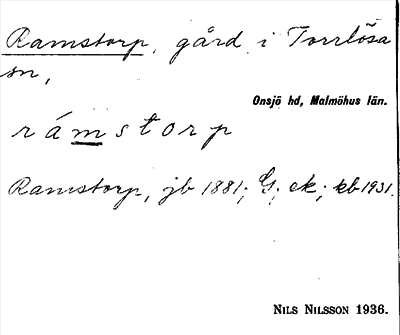 Ramstorp, gård i Torrlösa
sn,
Onsjö hd, Malmöhus län.
rámstorp
Ramstorp, jb 1881; G; ek; kb 1931.
NILS NILSSON 1936.